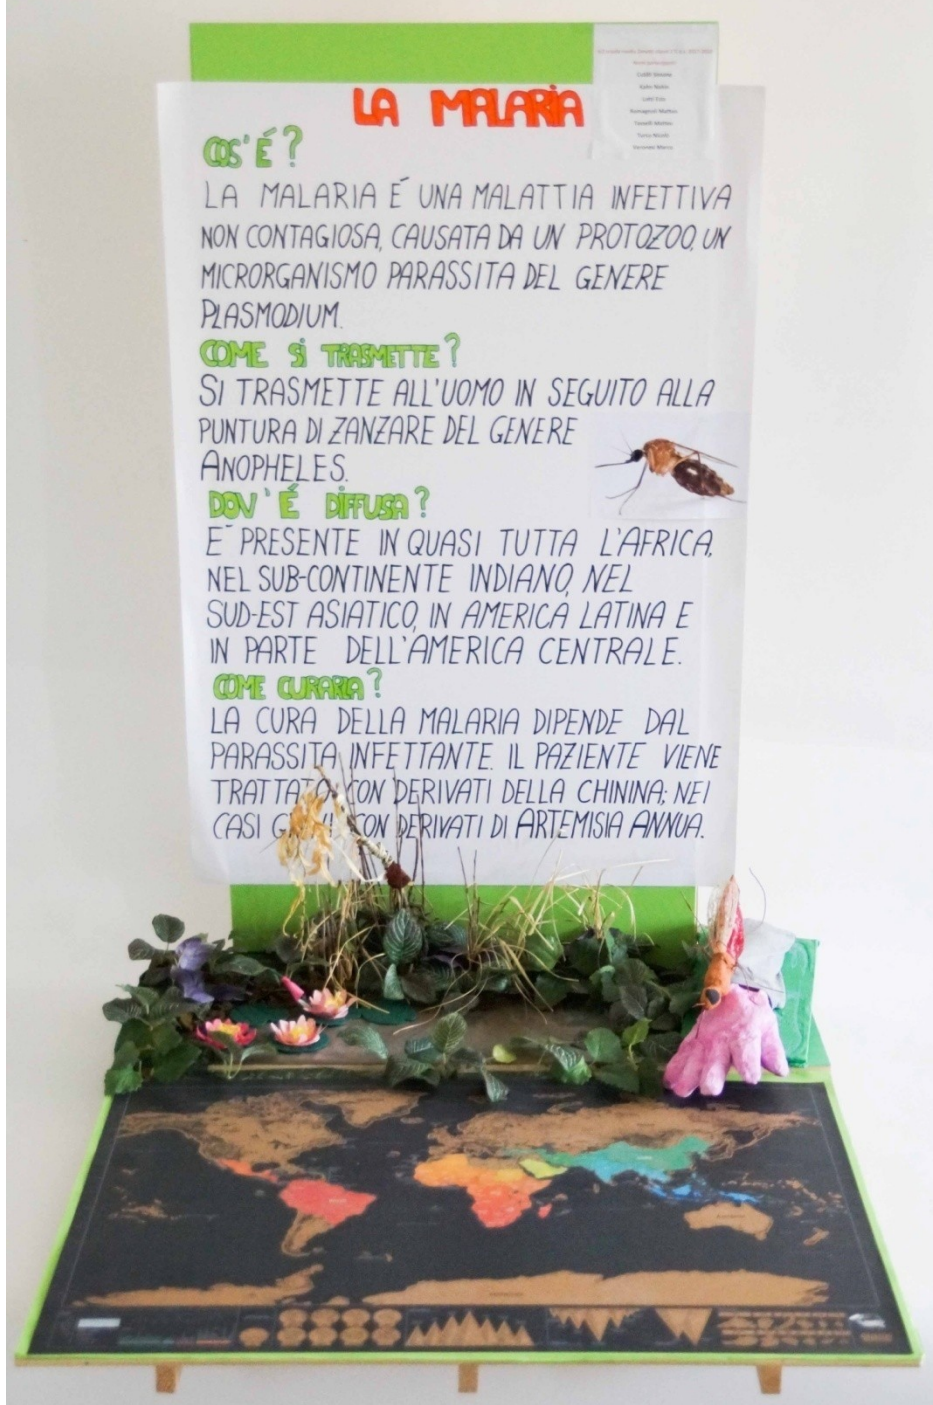 LA MALARIA
COS'É?
LA MALARIA É UNA MALATTIA INFETTIVA
NON CONTAGIOSA, CAUSATA DA UN PROTOZOO, UN
MICRORGANISMO PARASSITA DEL GENERE
PLASMODIUM.
COME SI TRASMETTE?
SI TRASMETTE ALL'UOMO IN SEGUITO ALLA
PUNTURA DI ZANZARE DEL GENERE
ANOPHELES.
DOV'É DIFFUSA?
E' PRESENTE IN QUASI TUTTA L'AFRICA,
NEL SUB-CONTINENTE INDIANO, NEL
SUD-EST ASIATICO, IN AMERICA LATINA E
IN PARTE DELL'AMERICA CENTRALE.
COME CURARLA?
LA CURA DELLA MALARIA DIPENDE DAL
PARASSITA INFETTANTE. IL PAZIENTE VIENE
TRATTATO CON DERIVATI DELLA CHININA; NEI
CASI GRAVI CON DERIVATI DI ARTEMISIA ANNUA.